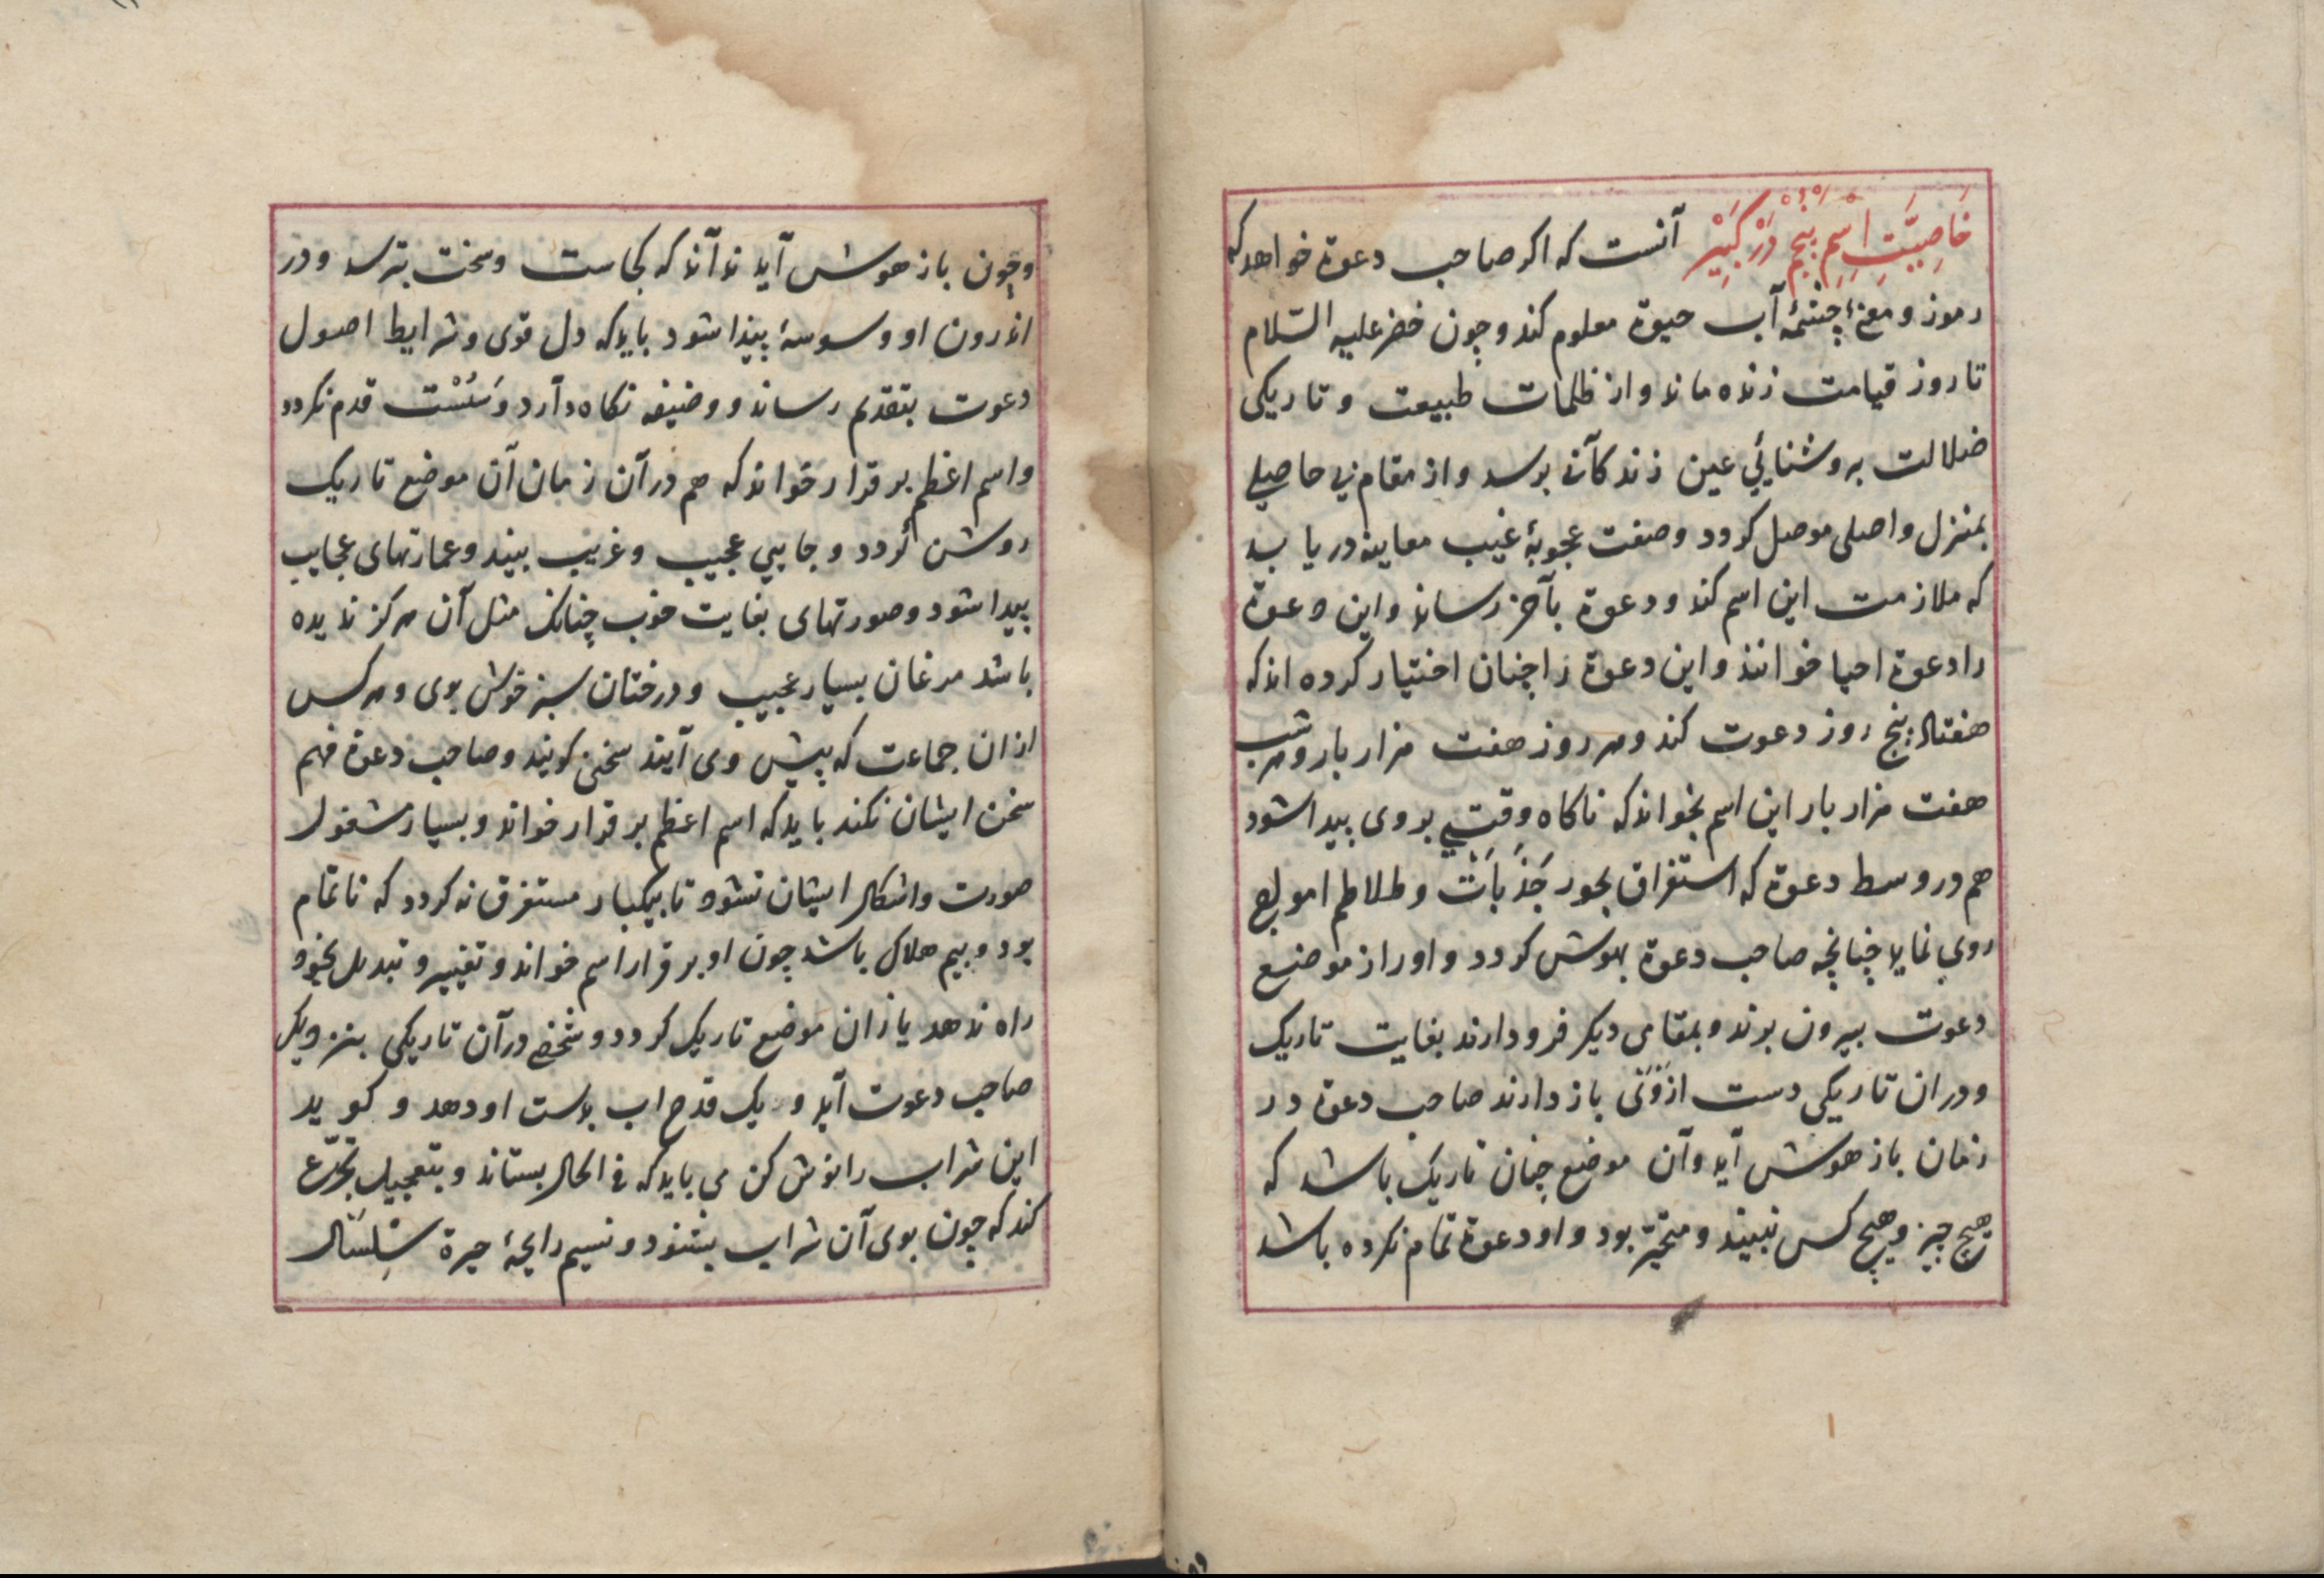 خَاصِيَّتِ اِسْمِ پَنْجُمْ دَرْ كَبِيْر آنست که اکر صاحب دعوة خواهد که
رموز و معنئ چشمهٔ آب حیوة معلوم کند و چون خضر علیه السّلام
تا روز قیامت زنده ماند و از ظلمات طبیعت و تاریکی
ضلالت بروشنایی عین زندکانی برسد و از مقام بی حاصلی
بمنزل واصلی موصل کردد و صفت عجوبهٔ غیب معاینه دریابد
که ملازمت این اسم کند و دعوة بآخر رساند و این دعوة
را دعوة احیا خوانند و این دعوة را چنان اختیار کرده اند که
هفتاد پنج روز دعوت کند و هر روز هفت هزار بار و هر شب
هفت هزار بار این اسم بخواند که ناکاه وقتیی بروی پیدا شود
هم در وسط دعوة که استغراق بحور جَذَبَاتْ و طلاطم امواج
روی نماید چنانچه صاحب دعوة بیهوش کردد و او را از موضع
دعوت بیرون برند و بمقامی دیکر فرود ارند بغایت تاریک
و در ان تاریکی دست از وَیْ باز دارند صاحب دعوة در
زمان باز هوش آید و آن موضع چنان تاریک باشد که
هیچ چیز و هیچ کس نبیند و متحیّر بود و او دعوة تمام نکرده باشد
و چون باز هوش آید نداند که کجاست و سخت بترسد و در
اندرون او وسوسهٔ پیدا شود باید که دل قوی و شرایط اصول
دعوت بتقدیم رساند و وضیفه نکاه دارد وَ سُسْت قدم نکردد
و اسم اعظم بر قرار خواند که هم در آن زمان آن موضع تاریک
روشن کردد و جایی عجیب و غریب بیند و عمارتهای عجایب
پیدا شود و صورتهای بغایت خوب چنانک مثل آن هرکز ندیده
باشد مرغان بسیار عجیب و درختان سبز خوش بوی و هر کس
از ان جماعت که پیش وی آیند سخن کویند و صاحب دعوة فهم
سخن ایشان نکند باید که اسم اعظم بر قرار خواند و بسیار مشغول
صورت و اشکال ایشان نشود تا بیکبار مستغرق نه کردد که ناتمام
بود و بیم هلاک باشد چون او بر قرار اسم خواند و تغییر و تبدیل بخود
راه ندهد باز ان موضع تاریک کردد و شخصی در آن تاریکی بنزدیک
صاحب دعوت آید و یک قدح اب بدست او دهد و کوید
این شراب را نوش کن می باید که فی الحال بستاند و بتعجیل تجرّع
کند که چون بوی آن شراب بشنود و نسیم رایحهٔ حیرة